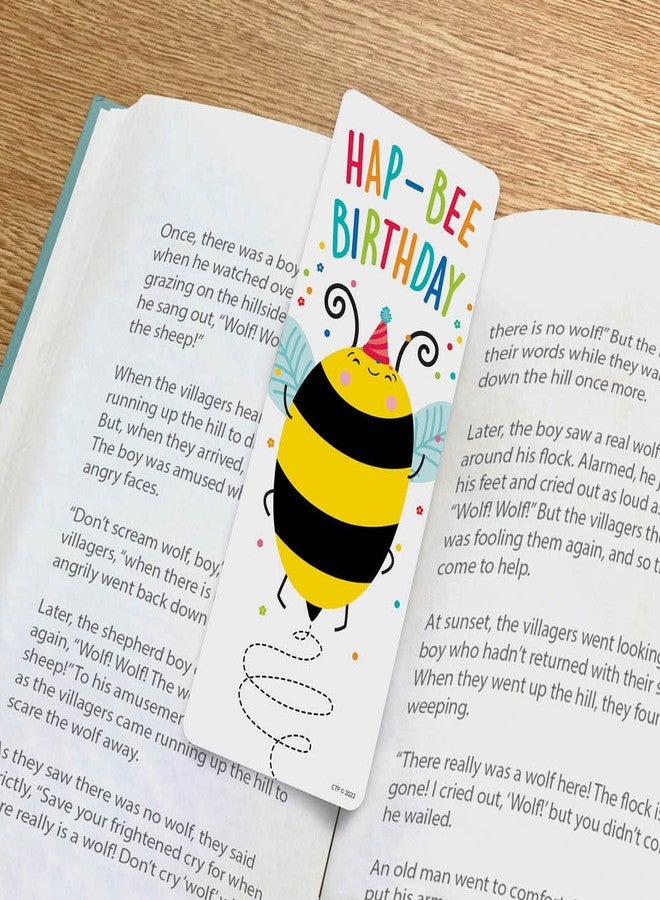 HAP-BEE
BIRTHDAY
CTP © 2022
Once, there was a boy
when he watched over
grazing on the hillside
he sang out, "Wolf! Wo
the sheep!"
When the villagers hear
running up the hill to d
But, when they arrived,
The boy was amused w
angry faces.
"Don't scream wolf, boy,
villagers, "when there is
angrily went back down
Later, the shepherd boy
again, "Wolf! Wolf! The w
sheep!" To his amusemen
as the villagers came running up the hill to
scare the wolf away.
As they saw there was no wolf, they said
strictly, "Save your frightened cry for when
there really is a wolf! Don't cry 'wolf'
there is no wolf!" But the
their words while they wa
down the hill once more.
Later, the boy saw a real wolf
around his flock. Alarmed, he j
his feet and cried out as loud as
"Wolf! Wolf!" But the villagers th
was fooling them again, and so t
come to help.
At sunset, the villagers went looking
boy who hadn't returned with their s
When they went up the hill, they foun
weeping.
"There really was a wolf here! The flock is
gone! I cried out, 'Wolf!' but you didn't co
he wailed.
An old man went to comfort
put his arm